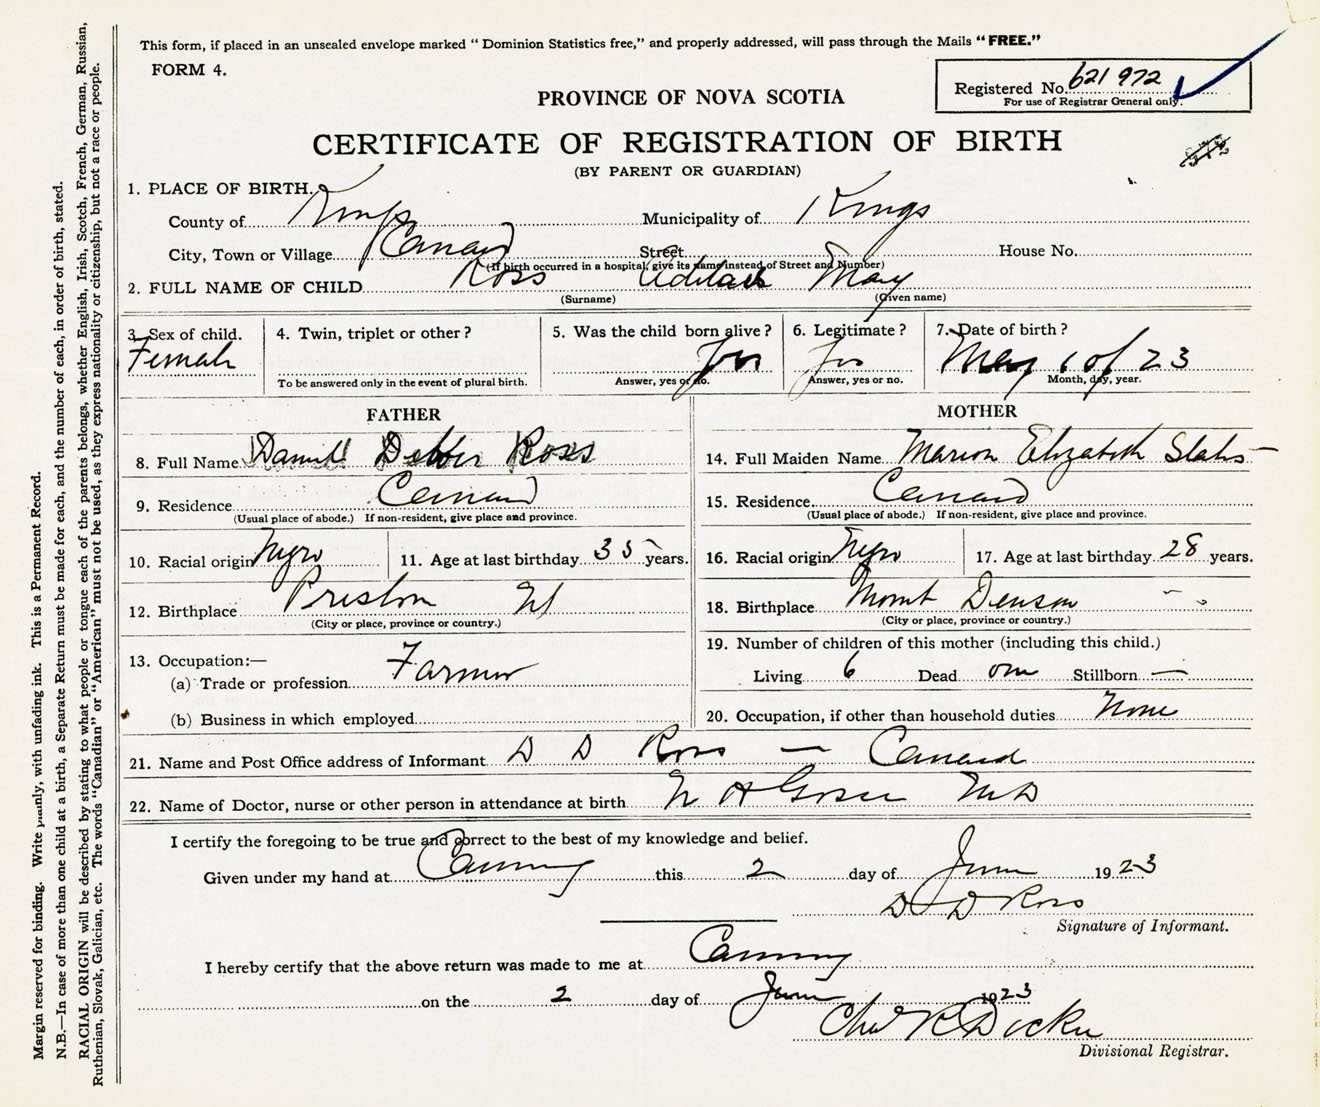 This form, if placed in an unsealed envelope marked "Dominion Statistics free," and properly addressed, will pass through the Mails "FREE."
FORM 4.
Registered No. 621 972
For use of Registrar General only.
PROVINCE OF NOVA SCOTIA
CERTIFICATE OF REGISTRATION OF BIRTH
(BY PARENT OR GUARDIAN)
1. PLACE OF BIRTH.
County of Kings Municipality of Kings
City, Town or Village Canard Street House No.
(If birth occurred in a hospital, give its name instead of Street and Number)
2. FULL NAME OF CHILD Ross May
(Surname) (Given name)
3. Sex of child. 4. Twin, triplet or other? 5. Was the child born alive? 6. Legitimate? 7. Date of birth?
Female Yes Yes May 23
To be answered only in the event of plural birth. Answer, yes or no. Answer, yes or no. Month, day, year.
FATHER MOTHER
8. Full Name Ross 14. Full Maiden Name Marion Elizabeth
9. Residence Canard 15. Residence Canard
(Usual place of abode.) If non-resident, give place and province. (Usual place of abode.) If non-resident, give place and province.
10. Racial origin Negro 11. Age at last birthday 35 years. 16. Racial origin Negro 17. Age at last birthday 28 years.
12. Birthplace Preston NS 18. Birthplace Mount Denson " "
(City or place, province or country.) (City or place, province or country.)
13. Occupation:— 19. Number of children of this mother (including this child.)
(a) Trade or profession Farmer Living 6 Dead one Stillborn —
(b) Business in which employed 20. Occupation, if other than household duties None
21. Name and Post Office address of Informant D D Ross — Canard
22. Name of Doctor, nurse or other person in attendance at birth MD
I certify the foregoing to be true and correct to the best of my knowledge and belief.
Given under my hand at Canning this 2 day of June 1923
D D Ross
Signature of Informant.
I hereby certify that the above return was made to me at Canning
on the 2 day of June 1923
Divisional Registrar.
Margin reserved for binding. Write plainly, with unfading ink. This is a Permanent Record.
N.B.—In case of more than one child at a birth, a Separate Return must be made for each, and the number of each, in order of birth, stated.
RACIAL ORIGIN will be described by stating to what people or tongue each of the parents belongs, whether English, Irish, Scotch, French, German, Russian,
Ruthenian, Slovak, Galician, etc. The words "Canadian" or "American" must not be used, as they express nationality or citizenship, but not a race or people.